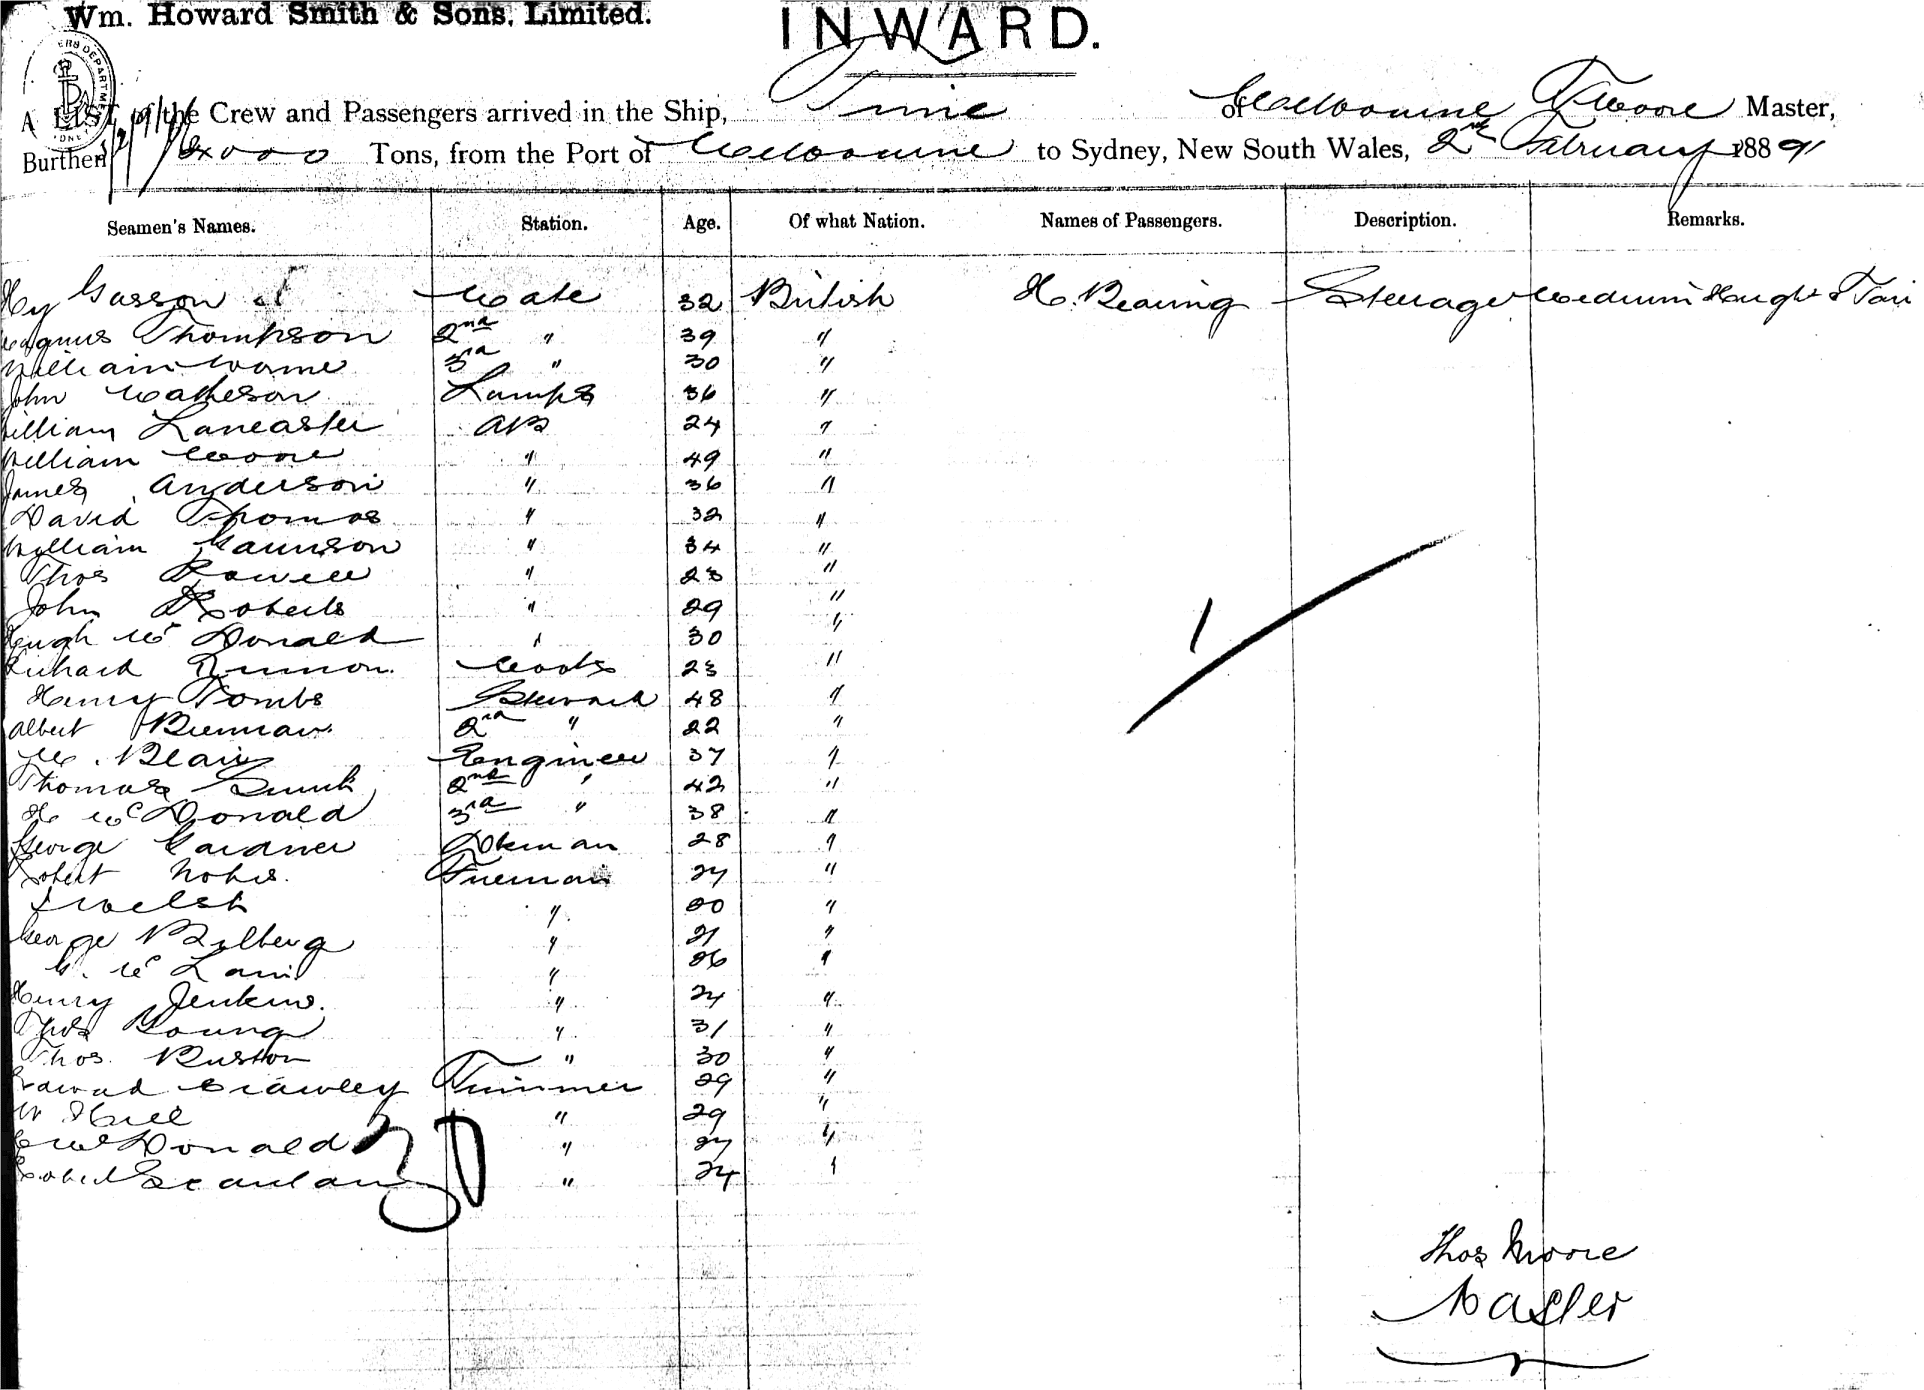 Wm. Howard Smith & Sons, Limited.
INWARD.
A LIST of the Crew and Passengers arrived in the Ship, of Melbourne T Moore Master,
Burthen 2000 Tons, from the Port of Melbourne to Sydney, New South Wales, 2nd February 1889
Seamen's Names. Station. Age. Of what Nation. Names of Passengers. Description. Remarks.
Hy Gasson Mate 32 British H. Bearing Steerage Medium Height & Fair
Magnus Thompson 2nd " 39 "
William 3rd " 30 "
John Matheson Lamps 36 "
William Lancaster AB 24 "
William Moore " 49 "
James Anderson " 36 "
David Thomas " 32 "
William " 34 "
Thos Powell " 23 "
John Roberts " 29 "
Hugh Mc Donald " 30 "
Richard Cook 23 "
Henry Tombs Steward 48 "
Albert 2nd " 22 "
M. Blair Engineer 37 "
Thomas 2nd " 42 "
H Mc Donald 3rd " 38 "
George Gardner Dkman 28 "
Robert Fireman 27 "
" 20 "
George " 21 "
Mc " 26 "
Henry Jenkins. " 24 "
Thos Young " 31 "
Thos. Buston " 30 "
Edward Crawley Trimmer 29 "
W Hill " 29 "
McDonald " 27 "
Robert Scanlan " 24 "
30
1
Thos Moore
Master